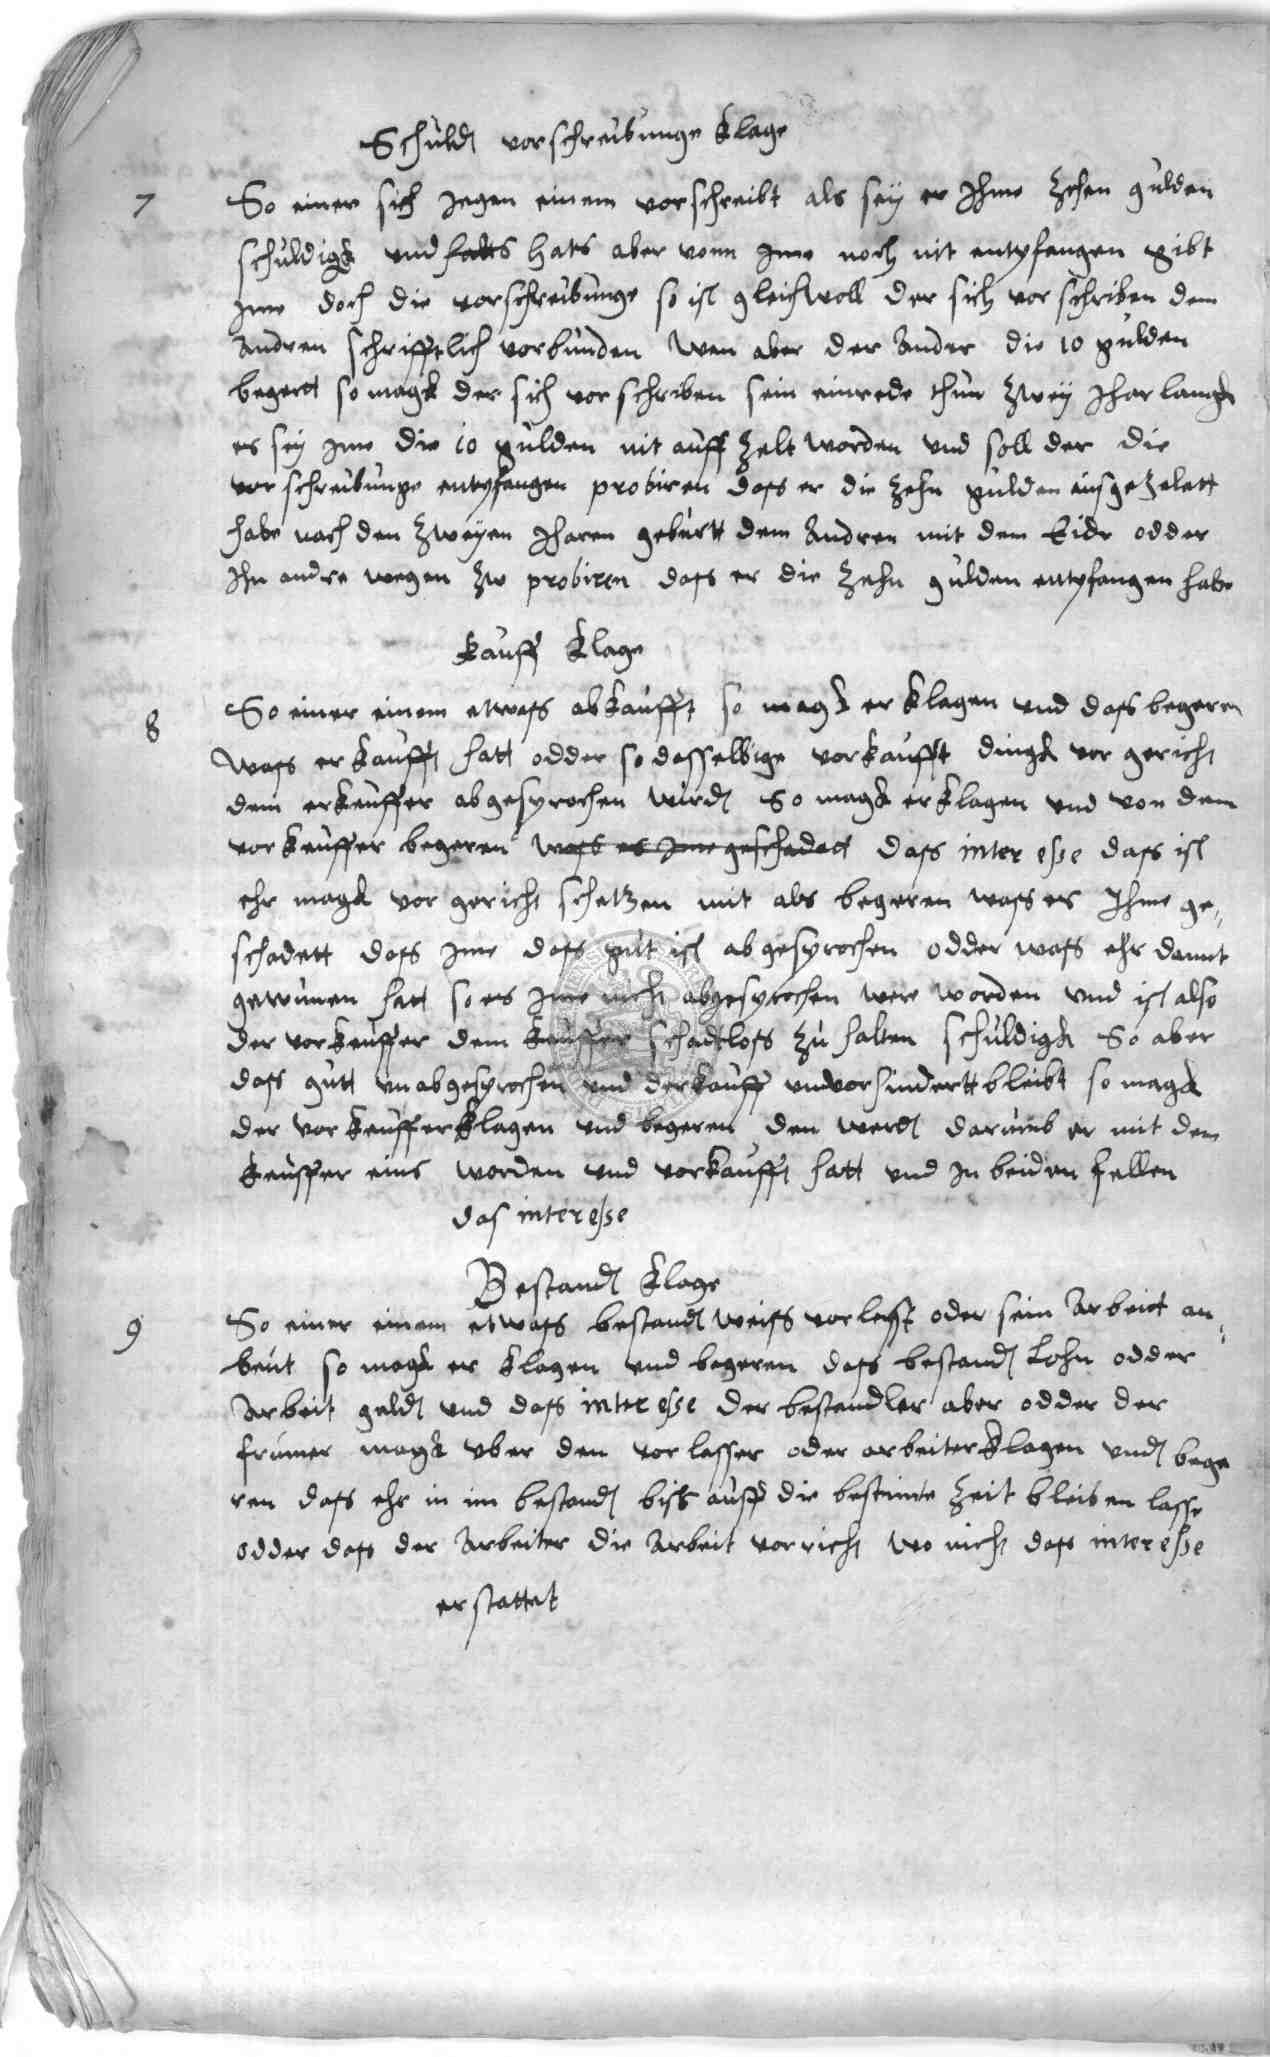 Schuldt vorschreibunge klage
7 So einer sich jegen einem vorschreibt als seÿ er Ihme zehen gulden
schuldigk vnd hatts hats aber vonn Ime noch nit entpfangen gibt
Ime doch die vorschreibunge so ist gleichwoll der sich vorschriben dem
Andren schrifftlich vorbunden Wen aber der Ander die 10 gulden
begertt so magk der sich vorschriben sein einrede thun zweÿ Ihar langk
es seÿ Ime die 10 gulden nit auff zelt worden vnd soll der die
vorschreibunge entpfangen probiren dass er die zehn gulden aussgezelett
habe nach den zweÿen Iharen geburtt dem Andren mit dem Eide odder
Ihn andre wegen zw probiren dass er die zehn gulden entpfangen habe
kauff klage
8 So einer einem etwass abkaufft so magk er klagen vnd dass begeren
Wass er kaufft hatt odder so dasselbige vorkaufft dingk vor gericht
dem erkeuffer abgesprochen wirdt So magk er klagen vnd von dem
vorkeuffer begeren wass es Ime geschadett dass interesse dass ist
ehr magk vor gericht schetzen mit als begeren wass es Ihme ge„
schadett dass Ime dass gut ist abgesprochen odder wass ehr damit
gewunen hatt so es Ime nicht abgesprochen were worden vnd ist also
der vorkeuffer dem keuffer schadtloss zu halten schuldigk So aber
dass gutt vnabgesprochen vnd der kauff vnduorhindertt bleibt so magk
der vorkeuffer klagen vnd begeren den werdt darumb er mit dem
keuffer eins worden vnd vorkaufft hatt vnd In beiden fellen
das interesse
Bestandt klage
9 So einer einem etwass bestandt weiss vorlest oder sein Arbeitt an„
beut so magk er klagen vnd begeren dass bestandt lohn odder
Arbeit geldt vnd dass interesse der bestendler aber odder der
frumer magk vber den vorlasser oder arbeiter klagen vndt bege
ren dass ehr in im bestandt biss auff die bestimte zeit bleiben lasse
odder dass der Arbeiter die Arbeit vorricht wo nicht dass interesse
erstattet